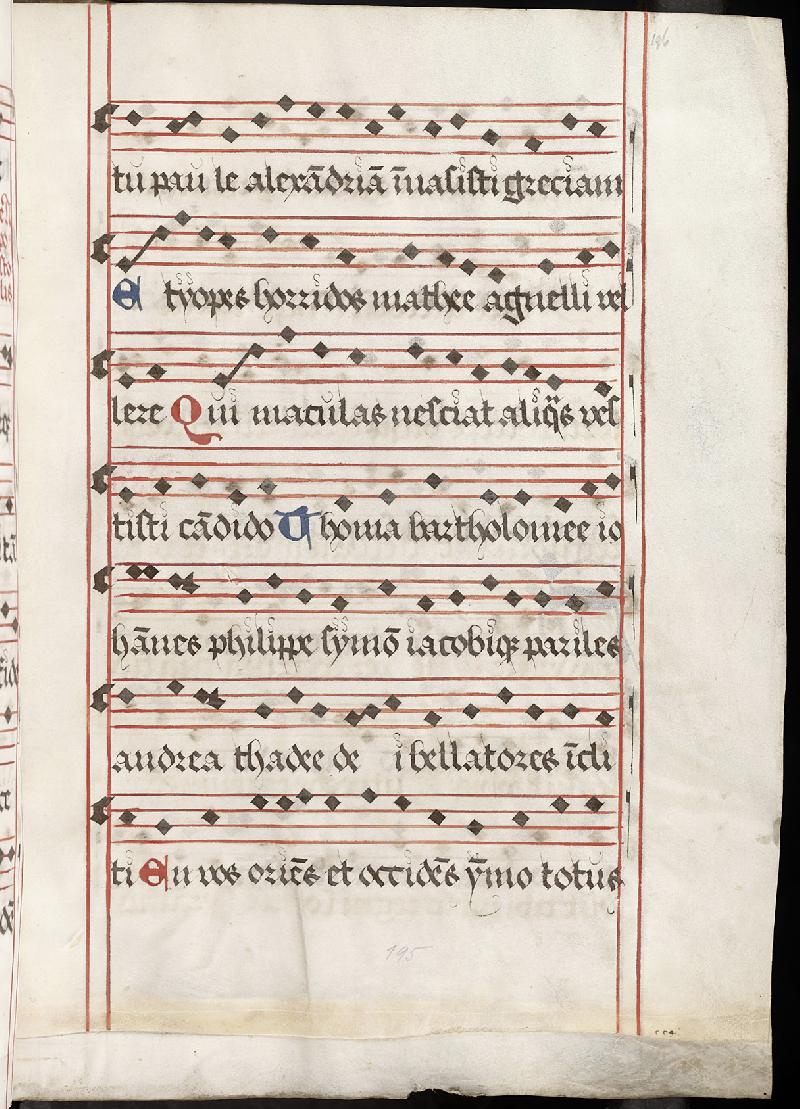 196
tu pau le alexādriā īuasisti greciam
E tyopes horridos mathee agnelli vel
lere Qui maculas nesciat aliq̄s ves
tisti cādido Thoma bartholomee io
hānes philippe symō iacobiq; pariles
andrea thadee de i bellatores īcli
ti En vos oriēs et occidēs ȳmo totus
195